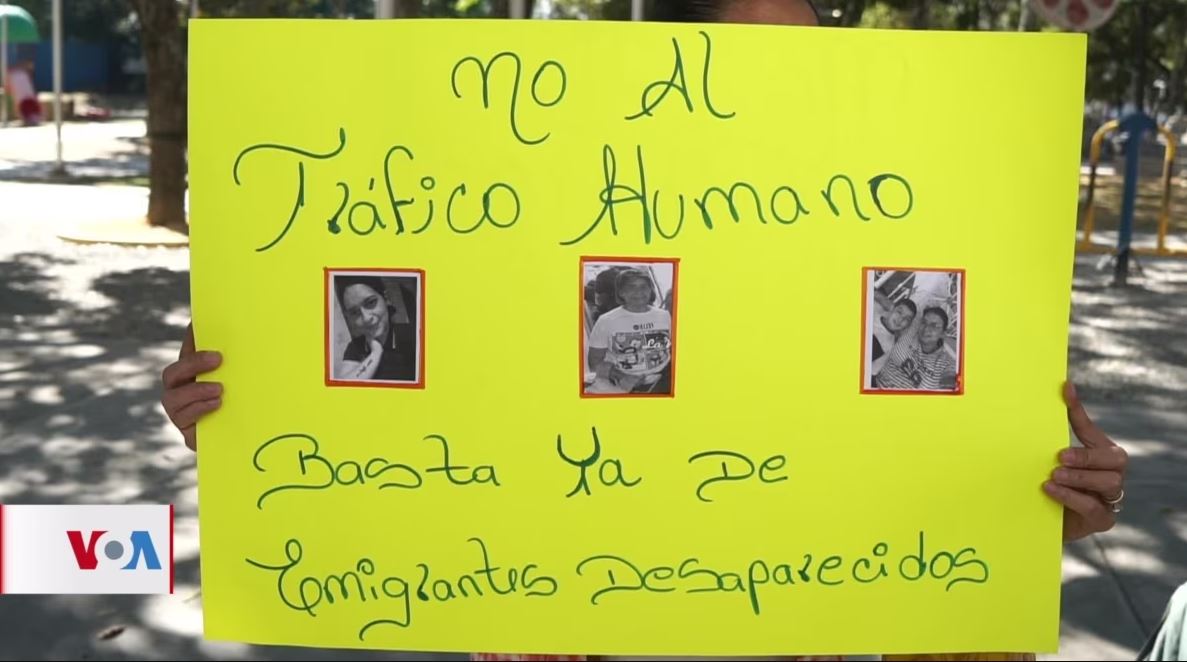 No Al
Tráfico Humano
Basta Ya De
Emigrantes Desaparecidos
VOA